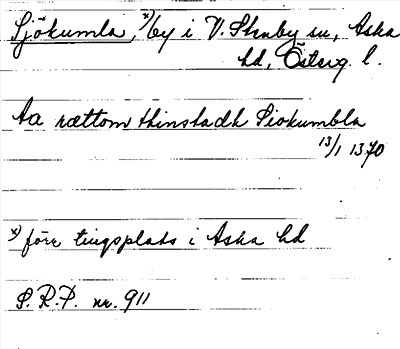 Sjökumla, x) by i V. Stenby sn, Aska
hd, Österg. l.
aa rættom thinstadh Siokumbla
13/1 1370
x) förr tingsplats i Aska hd
S.R.P. nr. 911